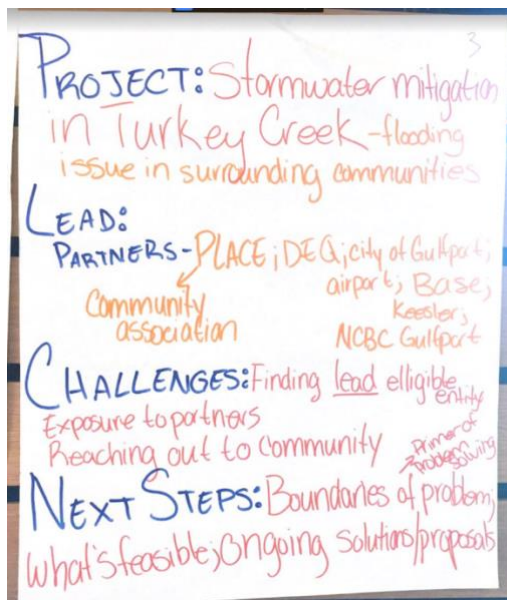 3
PROJECT: Stormwater mitigation
in Turkey Creek - flooding
issue in surrounding communities
LEAD:
PARTNERS - PLACE; DEQ; city of Gulfport;
airport; Base;
Community
Keesler;
association
NCBC Gulfport
CHALLENGES: Finding lead elligible
entity
Exposure to partners
Reaching out to Community
Primer of
problem
solving
NEXT STEPS: Boundaries of problem;
what's feasible; Ongoing solutions/proposals